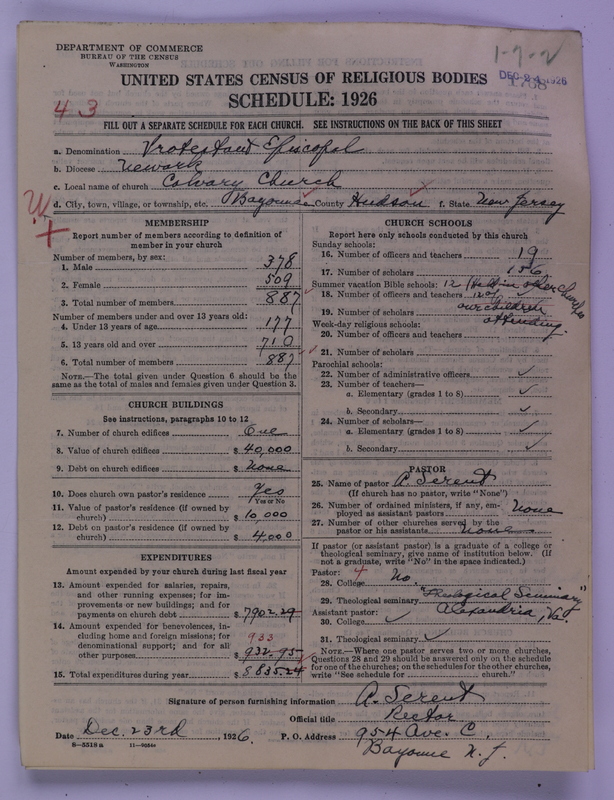 DEPARTMENT OF COMMERCE
BUREAU OF THE CENSUS
WASHINGTON
1-7-2
DEC 24 1926
1768
UNITED STATES CENSUS OF RELIGIOUS BODIES
SCHEDULE: 1926
43
FILL OUT A SEPARATE SCHEDULE FOR EACH CHURCH. SEE INSTRUCTIONS ON THE BACK OF THIS SHEET
a. Denomination Protestant Episcopal
b. Diocese Newark
c. Local name of church Calvary Church
d. City, town, village, or township, etc. Bayonne County Hudson f. State New Jersey
MEMBERSHIP
Report number of members according to definition of
member in your church
Number of members, by sex:
1. Male 378
2. Female 509
3. Total number of members 887
Number of members under and over 13 years old:
4. Under 13 years of age 177
5. 13 years old and over 710
6. Total number of members 887
NOTE.—The total given under Question 6 should be
same as the total of males and females given under Question 3.
CHURCH BUILDINGS
See instructions, paragraphs 10 to 12
7. Number of church edifices One
8. Value of church edifices $ 40,000
9. Debt on church edifices $ None
10. Does church own pastor's residence Yes
Yes or No
11. Value of pastor's residence (if owned by
church) $ 10,000
12. Debt on pastor's residence (if owned by
church) $ 4,000
EXPENDITURES
Amount expended by your church during last fiscal year
13. Amount expended for salaries, repairs,
and other running expenses; for im-
provements or new buildings; and for
payments on church debt $ 7902.29
14. Amount expended for benevolences, in-
cluding home and foreign missions; for
denominational support; and for all
other purposes $ 932.95
933
15. Total expenditures during year $ 8835.24
CHURCH SCHOOLS
Report here only schools conducted by this church
Sunday schools:
16. Number of officers and teachers 19
17. Number of scholars 156
Summer vacation Bible schools: 12 (Held in other churches
18. Number of officers and teachers 12 of
19. Number of scholars our children attending.
Week-day religious schools:
20. Number of officers and teachers
21. Number of scholars
Parochial schools:
22. Number of administrative officers
23. Number of teachers—
a. Elementary (grades 1 to 8)
b. Secondary
24. Number of scholars—
a. Elementary (grades 1 to 8)
b. Secondary
PASTOR
25. Name of pastor A. Serent
(If church has no pastor, write "None")
26. Number of ordained ministers, if any, em-
ployed as assistant pastors None
27. Number of other churches served by the
pastor or his assistants None
If pastor (or assistant pastor) is a graduate of a college or
theological seminary, give name of institution below. (If
not a graduate, write "No" in the space indicated.)
Pastor:
28. College No
29. Theological seminary "Theological Seminary"
Assistant pastor: Alexandria, Va.
30. College
31. Theological seminary
NOTE.—Where one pastor serves two or more churches,
Questions 28 and 29 should be answered only on the schedule
for one of the churches; on the schedules for the other churches,
write "See schedule for church."
Signature of person furnishing information A. Serent
Official title Rector
Date Dec. 23rd, 1926. P. O. Address 954 Ave. C.
Bayonne N. J.
8—5518a 11—9054